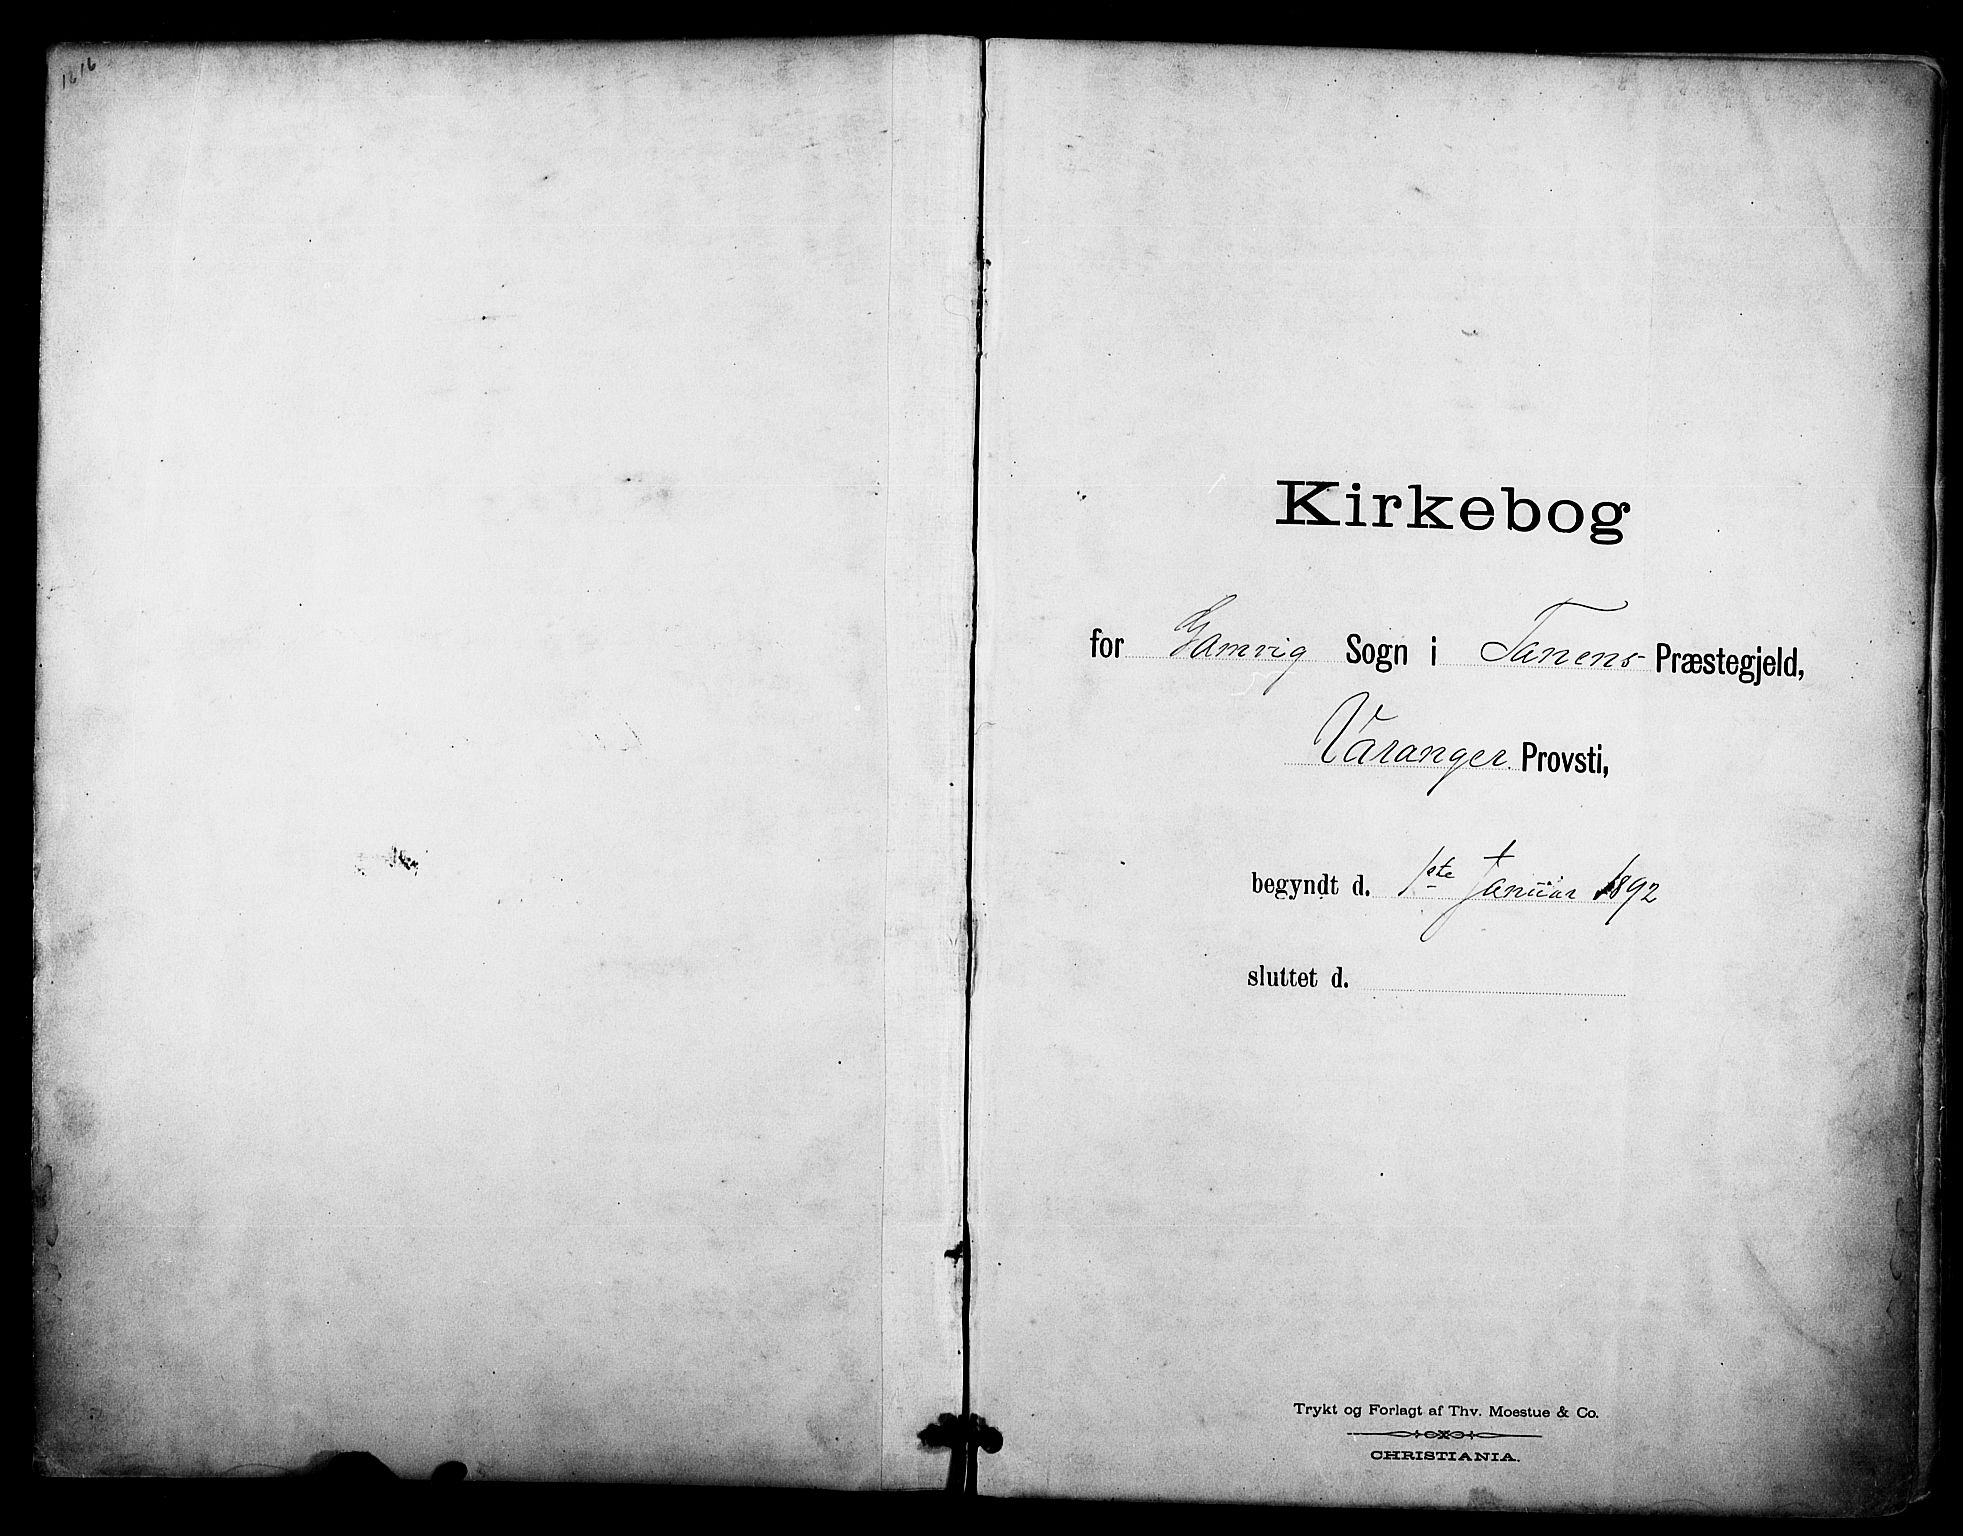 1616
Kirkebog
for Gamvig Sogn i Tanens Præstegjeld,
Varanger Provsti,
begyndt d. 1ste Januar 1892
sluttet d.
Trykt og Forlagt af Thv. Moestue & Co.
CHRISTIANIA.